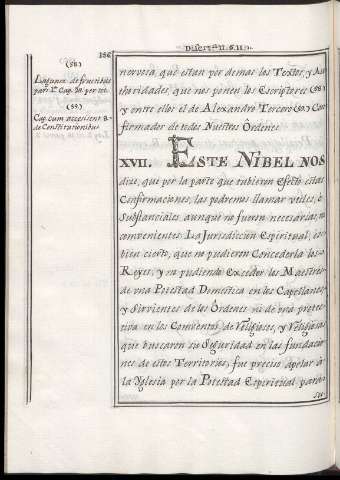 186
Disert.ⁿ II. §. II.
(58.)
Laguna de fructibus
part. 1.ª Cap. 30. per tot.
(59.)
Cap. cum accessissent 8.
de Constitutionibus
nervosa, que estan por demas los Textos, y Au-
thoridades, que nos ponen los Escriptores (58.)
y entre ellos el de Alexandro Tercero (59.) Con-
firmador de todos Nuestros Ordenes.
XVII. ESTE NIBEL NOS
dize, que por la parte que tubieron efecto estas
Confirmaciones, las podremos llamar vtiles, ò
Substanciales, aunque no fuesen necesarias, ni
convenientes. La Jurisdiccion Espiritual, es
bien cierto, que no pudieron Concederla los
Reyes, y no pudiendo Exceder los Maestres
de vna Potestad Domestica en los Capellanes,
y Sirvientes de los Ordenes ni de vna protec-
tiva en los Conventos de Religiosos, y Religiosas
que buscaron su Seguridad en las fundacio-
nes de estos Territorios, fue preciso apelar à
la Yglesia por la Potestad Espiritual para
su